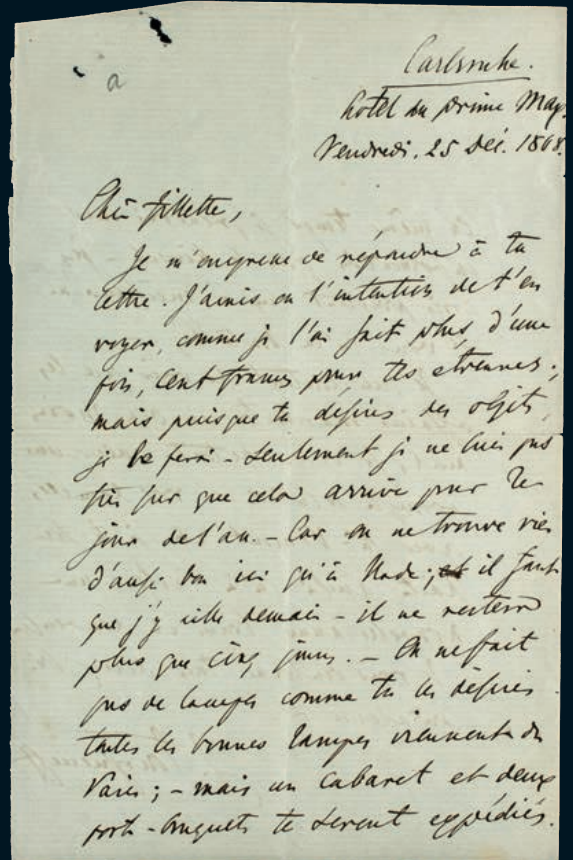 a
Carlsruhe.
hôtel du Prince Max.
Vendredi, 25 Déc. 1868.
Chère fillette,
Je m'empresse de répondre à ta
lettre. J'avais eu l'intention de t'en
voyer, comme je l'ai fait plus d'une
fois, cent francs pour tes étrennes;
mais puisque tu désires des objets,
je le ferai - seulement je ne suis pas
très sûr que cela arrive pour le
jour de l'an. - Car on ne trouve rien
d'aussi bon ici qu'à Bade; et il faut
que j'y aille demain - il ne restera
plus que cinq jours. - On ne fait
pas de lampes comme tu les désires
toutes les bonnes lampes viennent de
Paris; - mais un cabaret et deux
porte-bouquets te seront expédiés.